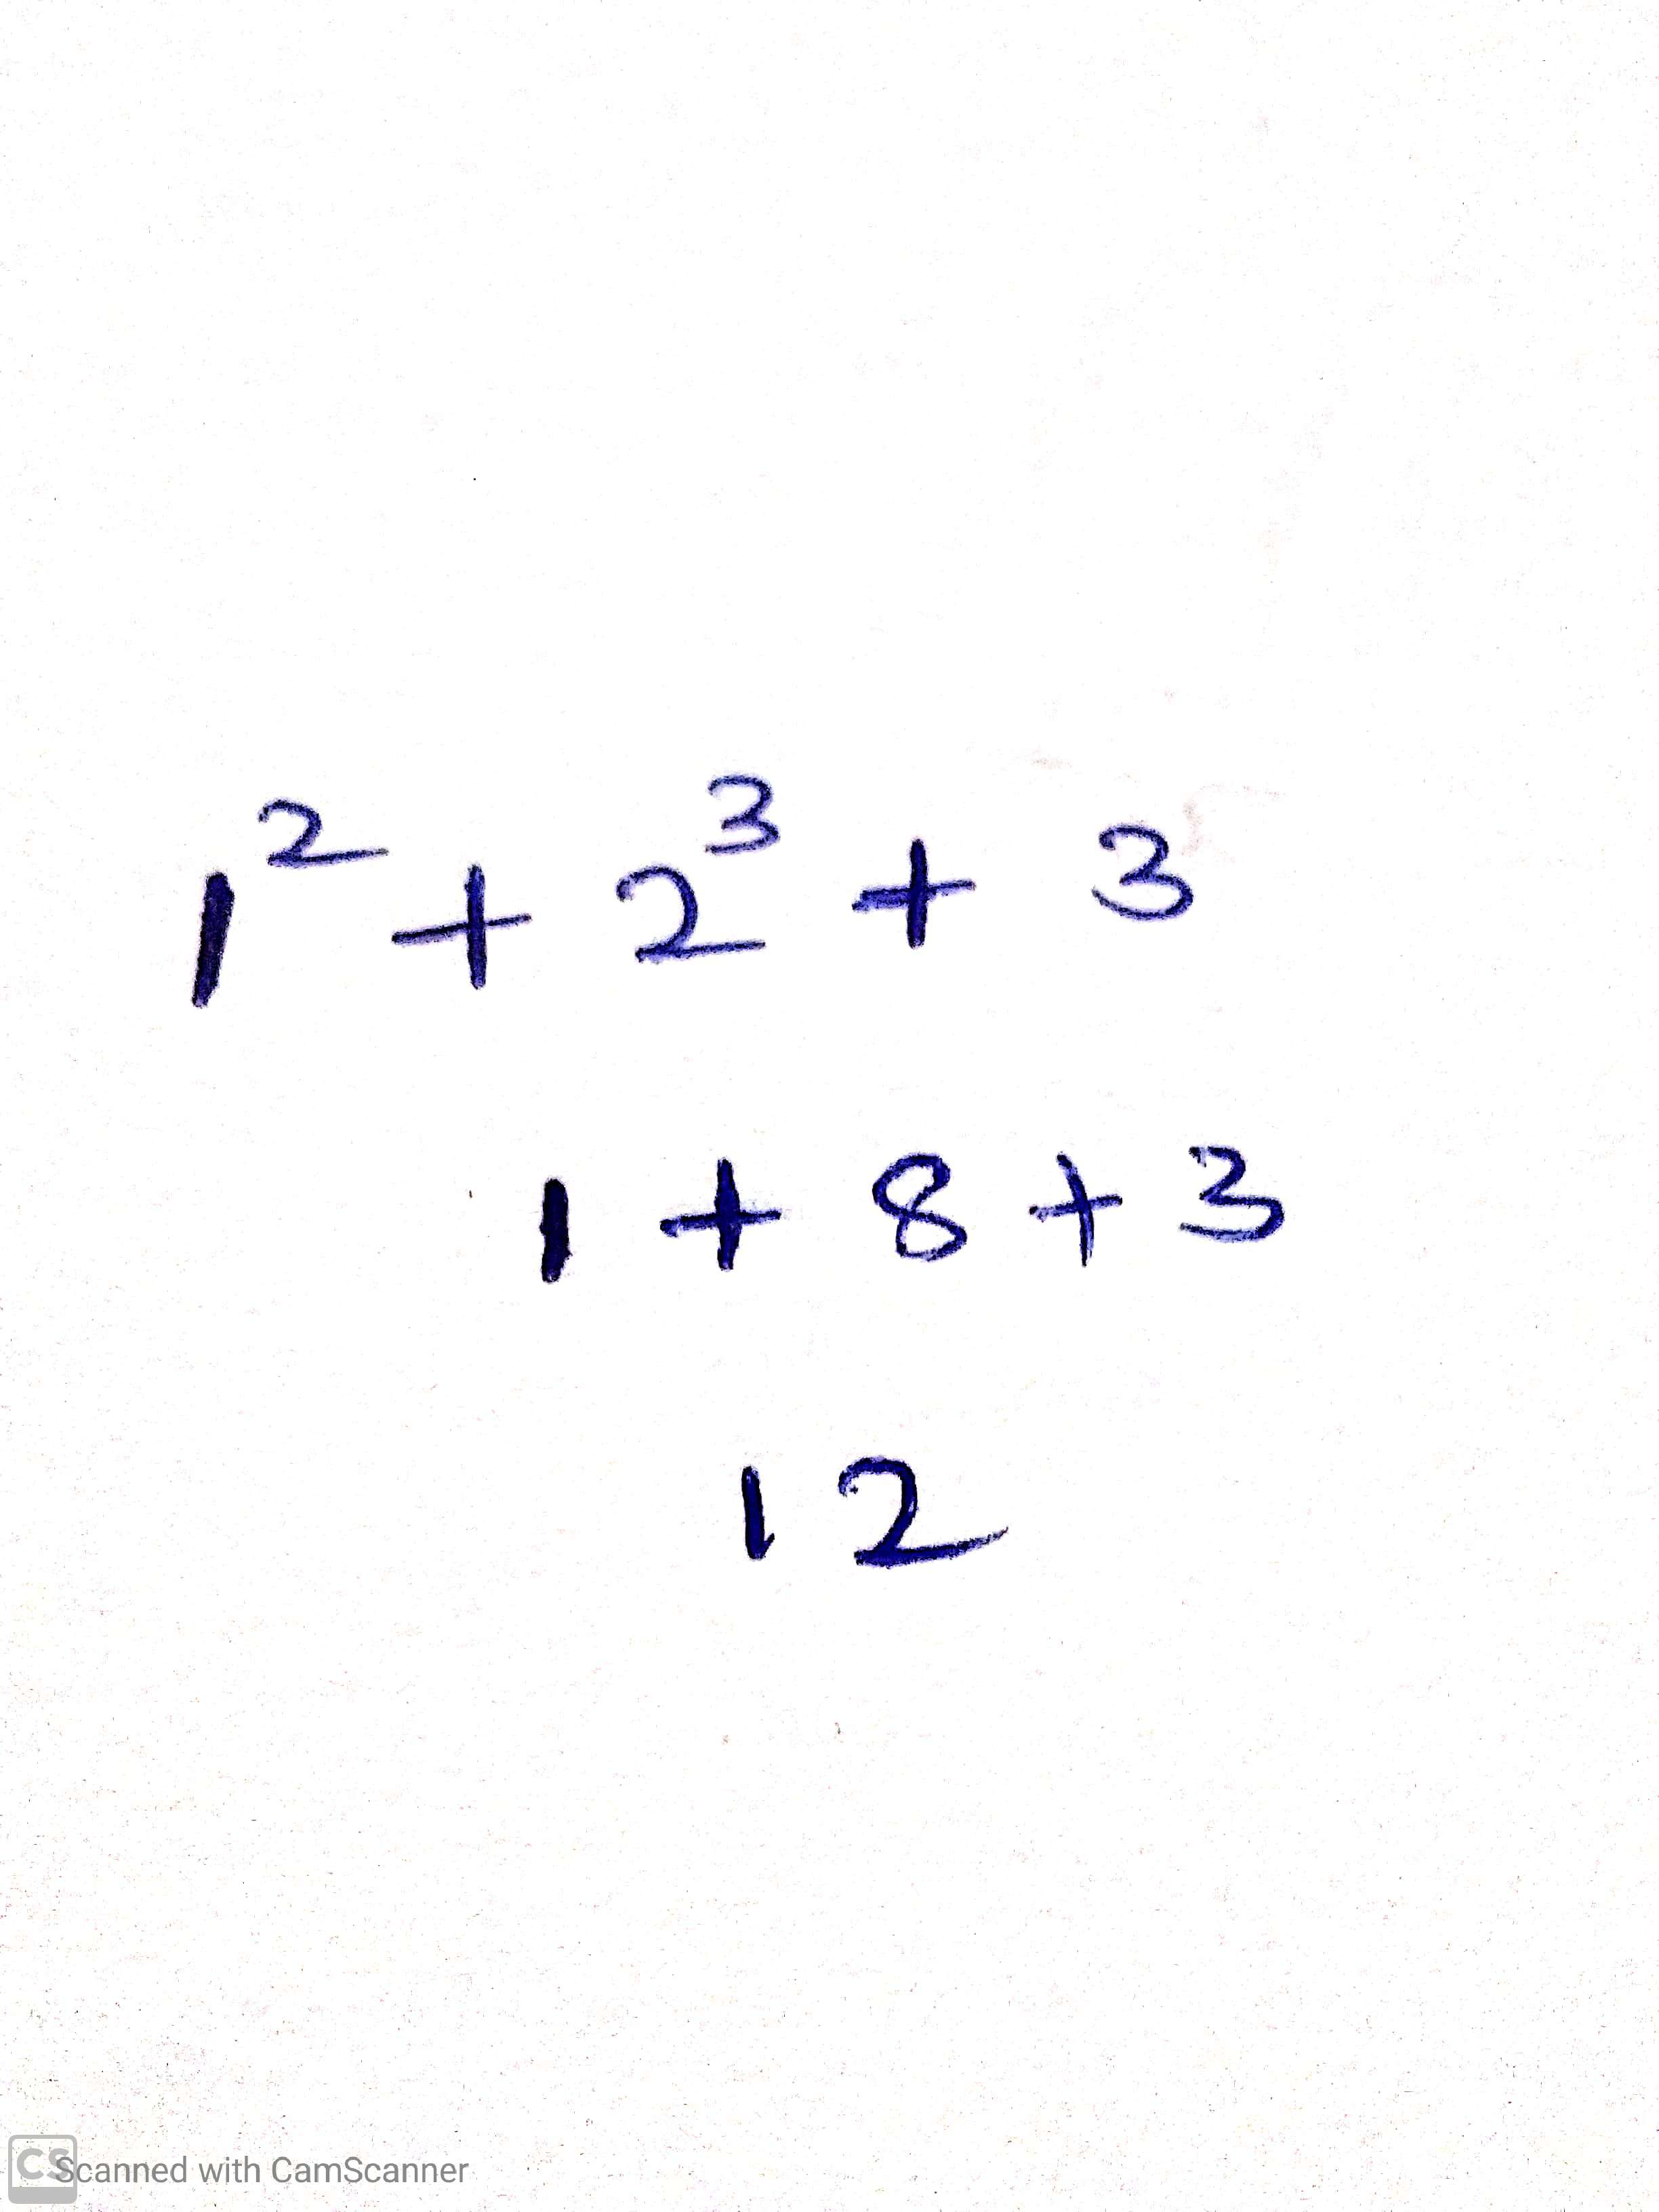 1² + 2³ + 3
1 + 8 + 3
12
CS Scanned with CamScanner